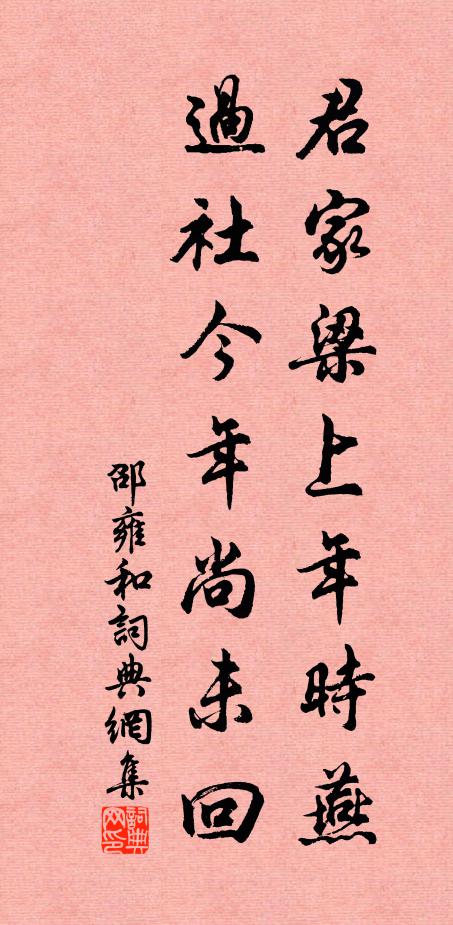 君家梁上年時燕
過社今年尚未回
邵雍和詞典網集
詞典網印